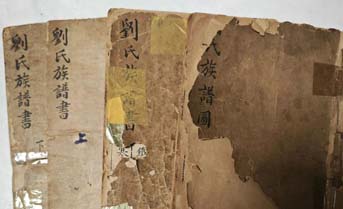 劉氏族譜書
下
劉氏族譜書
上
劉氏族譜書
氏族譜圖